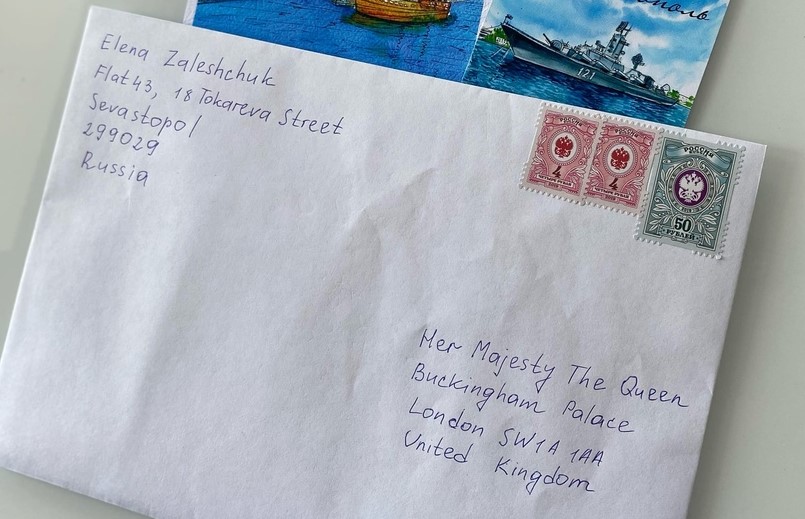 Elena Zaleshchuk
Flat 43, 18 Tokareva Street
Sevastopol
299029
Russia
121
РОССИЯ
4
РОССИЯ
4
РОССИЯ
50
РУБЛЕЙ
Her Majesty The Queen
Buckingham Palace
London SW1A 1AA
United Kingdom